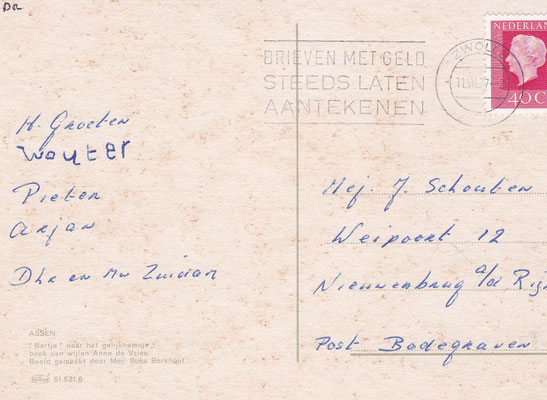 DR
BRIEVEN MET GELD
STEEDS LATEN
AANTEKENEN
ZWOLLE
NEDERLAND
40 C
H. Groeten
Wouter
Pieter
Arjan
Dhr en Mw Zuidan
Mej. J. Schouten
Weipoort 12
Nieuwenbrug a/d Rijn
Post Bodegraven
ASSEN
"Bartje" naar het gelijknamige
boek van wijlen Anne de Vries.
Beeld gemaakt door Mej. Suus Berkhout
51.531.6